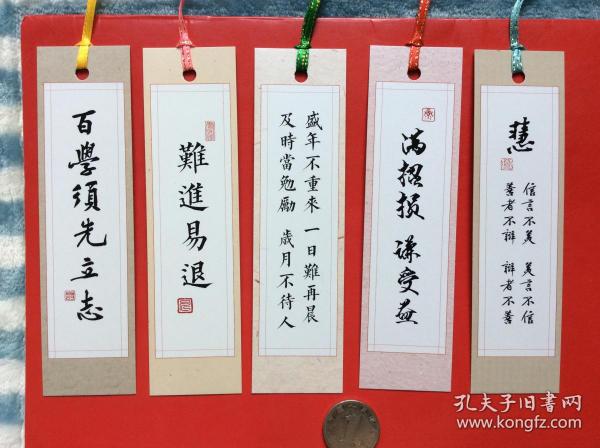 百學須先立志
難進易退
盛年不重來 一日難再晨
及時當勉勵 歲月不待人
满招损 谦受益
慧
信言不美 美言不信
善者不辯 辯者不善
孔夫子旧书网
www.kongfz.com